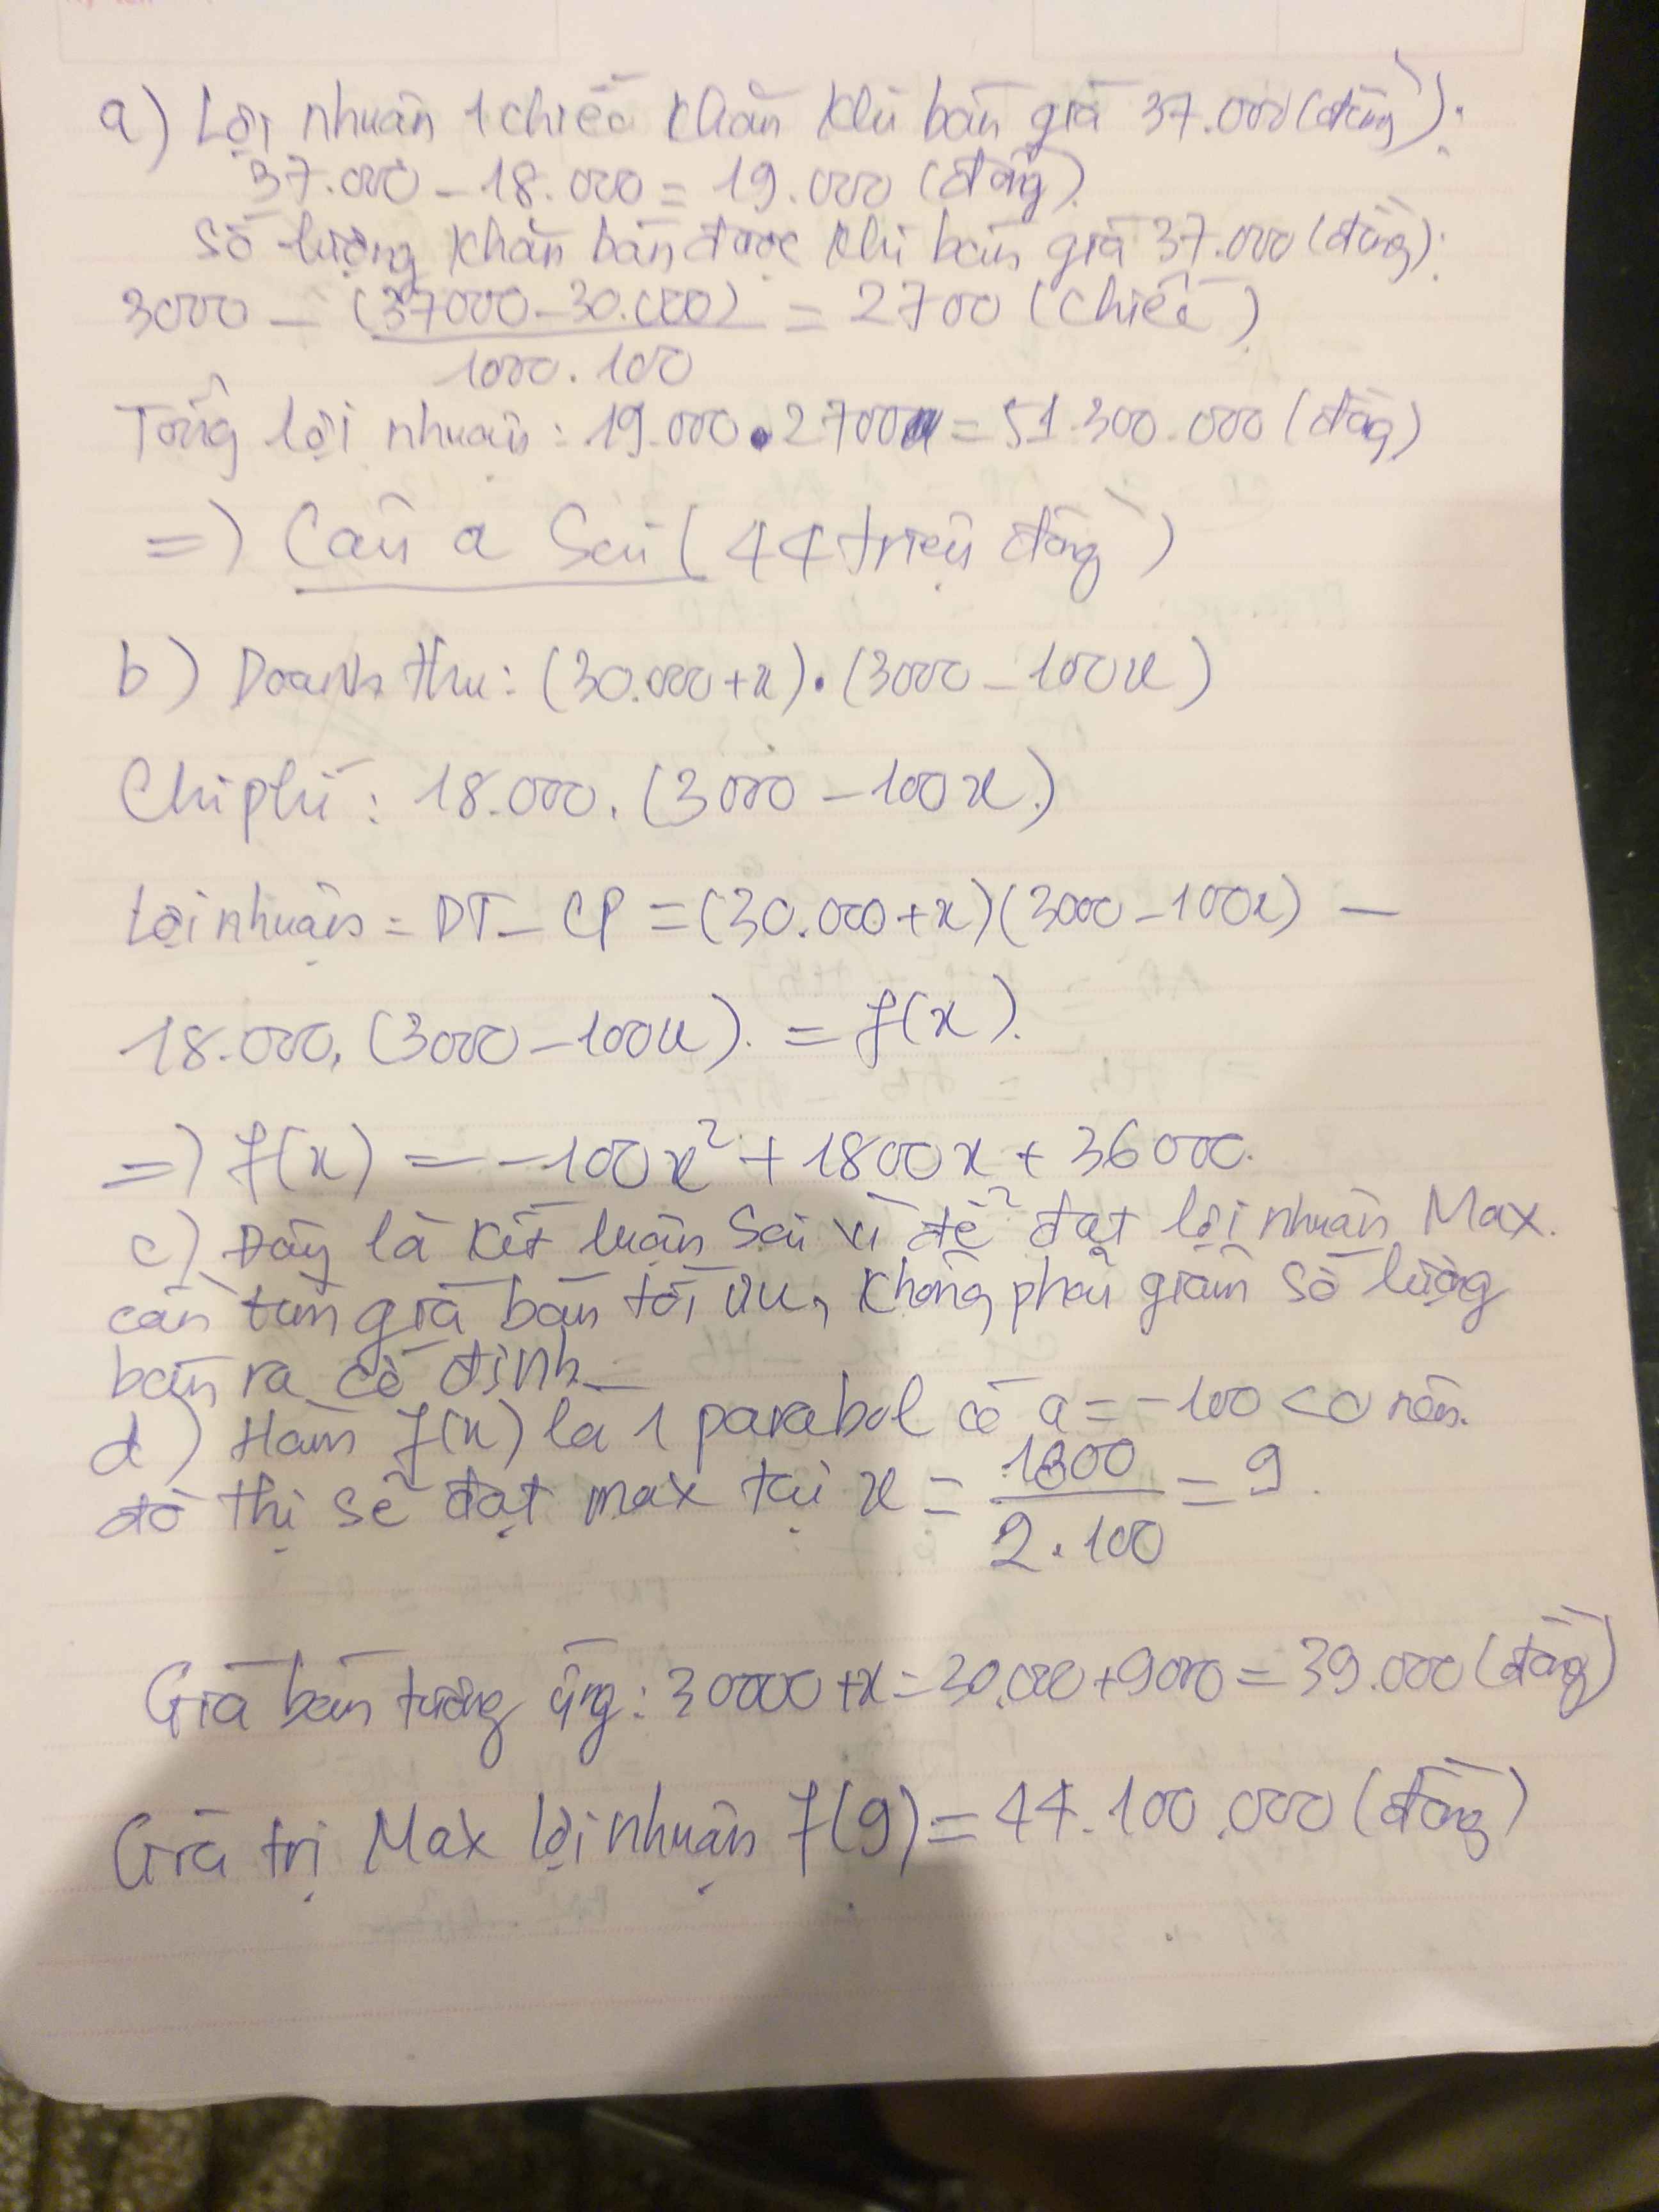 a) Lợi nhuận 1 chiếc khăn khi bán giá 37.000 (đồng):
37.000 - 18.000 = 19.000 (đồng)
Số lượng khăn bán được khi bán giá 37.000 (đồng):
3000 - (37000 - 30.000) / 1000.100 = 2700 (chiếc)
Tổng lợi nhuận: 19.000 . 2700 = 51.300.000 (đồng)
=> Câu a Sai (44 triệu đồng)
b) Doanh thu: (30.000 + x) . (3000 - 100x)
Chi phí: 18.000. (3000 - 100x.)
Lợi nhuận = DT - CP = (30.000 + x)(3000 - 100x) -
18.000. (3000 - 100x). = f(x).
=> f(x) = -100x² + 1800x + 36000.
c) Đây là kết luận sai vì để đạt lợi nhuận Max.
cần tìm giá bán tối ưu, không phải giảm số lượng
bán ra cố định
d) Hàm f(x) là 1 parabol có a = -100 < 0 nên.
đồ thị sẽ đạt max tại x = 1800 / 2.100 = 9.
Giá bán tương ứng: 30000 + x = 30.000 + 9000 = 39.000 (đồng)
Giá trị Max lợi nhuận f(9) = 44.100.000 (đồng)